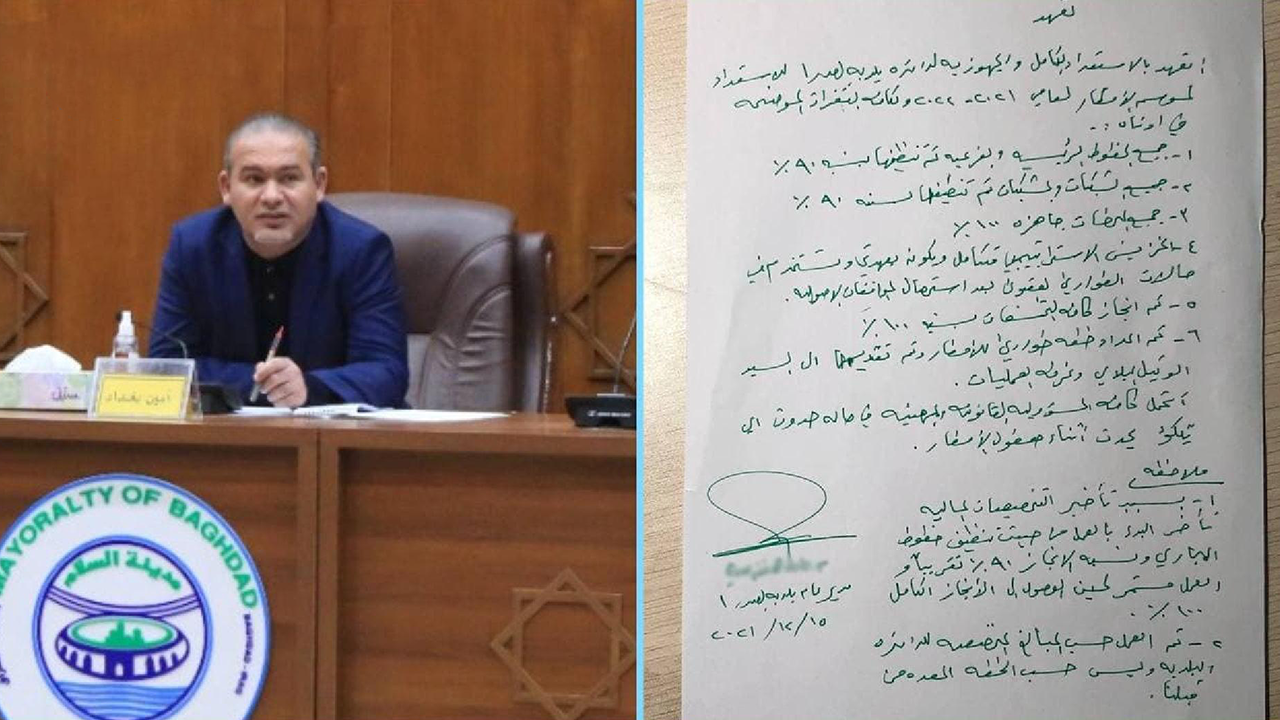 أمين بغداد
MAYORALTY OF BAGHDAD
مدينة السلام
BAGHDAD - IRAQ
تعهد
اتعهد بالاستعداد الكامل والجهوزيه لدائره بلديه الصدر ١ للاستعداد
لموسم الامطار لعامي ٢٠٢١-٢٠٢٢ ولكافه الفقرات الموضحه
في ادناه :-
١- جميع الخطوط الرئيسيه والفرعيه تم تنظيفها بنسبه ٩٠٪
٢- جميع الشبكات والمشبكات تم تنظيفها بنسبه ٩٠٪
٣- جميع المحطات جاهزه ١٠٠٪
٤- الخزين الاستراتيجي متكامل ويكون بعهدتي ويستخدم في
حالات الطوارئ القصوى بعد استحصال الموافقات الاصوليه.
٥- تم انجاز كافه التخسفات بنسبه ١٠٠٪
٦- تم اعداد خطه طوارئ للامطار وتم تقديمها الى السيد
الوكيل البلدي وغرفه العمليات.
اتحمل كافه المسؤوليه القانونيه والمهنيه في حاله حدوث اي
تلكؤ يحدث أثناء هطول الامطار.
ملاحظه
١- بسبب تأخير التخصيصات الماليه
تأخر البدء بالعمل من حيث تنظيف خطوط
المجاري ونسبه الانجاز ٩٠٪ تقريباً و
العمل مستمر لحين الوصول الى الانجاز الكامل
١٠٠٪.
٢- تم العمل حسب المبالغ المخصصه للدائره
البلديه وليس حسب الخطه المعده من
قبلنا.
مدير عام بلديه الصدر ١
٢٠٢١/١٢/١٥